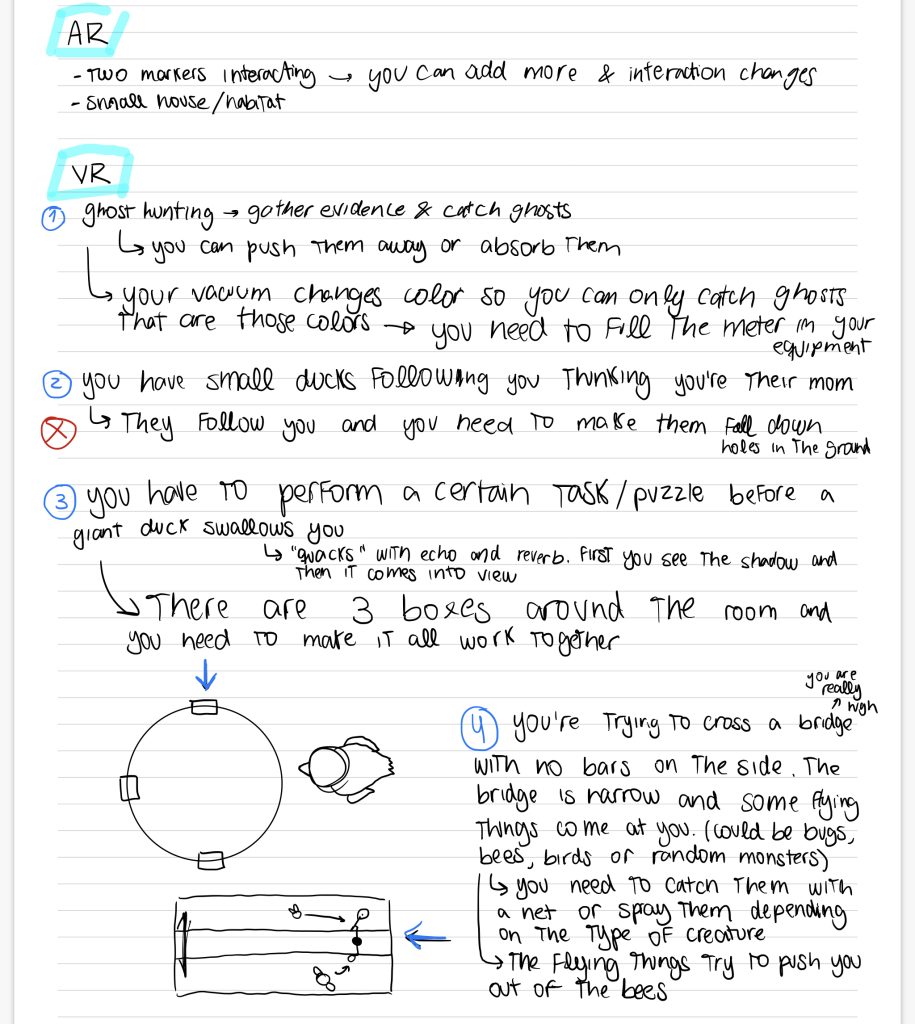 AR
- Two markers interacting → you can add more & interaction changes
- small house/habitat
VR
1 ghost hunting → gather evidence & catch ghosts
↳ you can push them away or absorb them
↳ your vacuum changes color so you can only catch ghosts
that are those colors → you need to fill the meter in your
equipment
2 you have small ducks following you thinking you're their mom
↳ They follow you and you need to make them fall down
holes in the ground
3 you have to perform a certain task/puzzle before a
giant duck swallows you
↳ "quacks" with echo and reverb. First you see the shadow and
then it comes into view
↳ There are 3 boxes around the room and
you need to make it all work together
you are
really
high
4 you're trying to cross a bridge
with no bars on the side. The
bridge is narrow and some flying
things come at you. (could be bugs,
bees, birds or random monsters)
↳ you need to catch them with
a net or spray them depending
on the type of creature
↳ The flying things try to push you
out of the bees